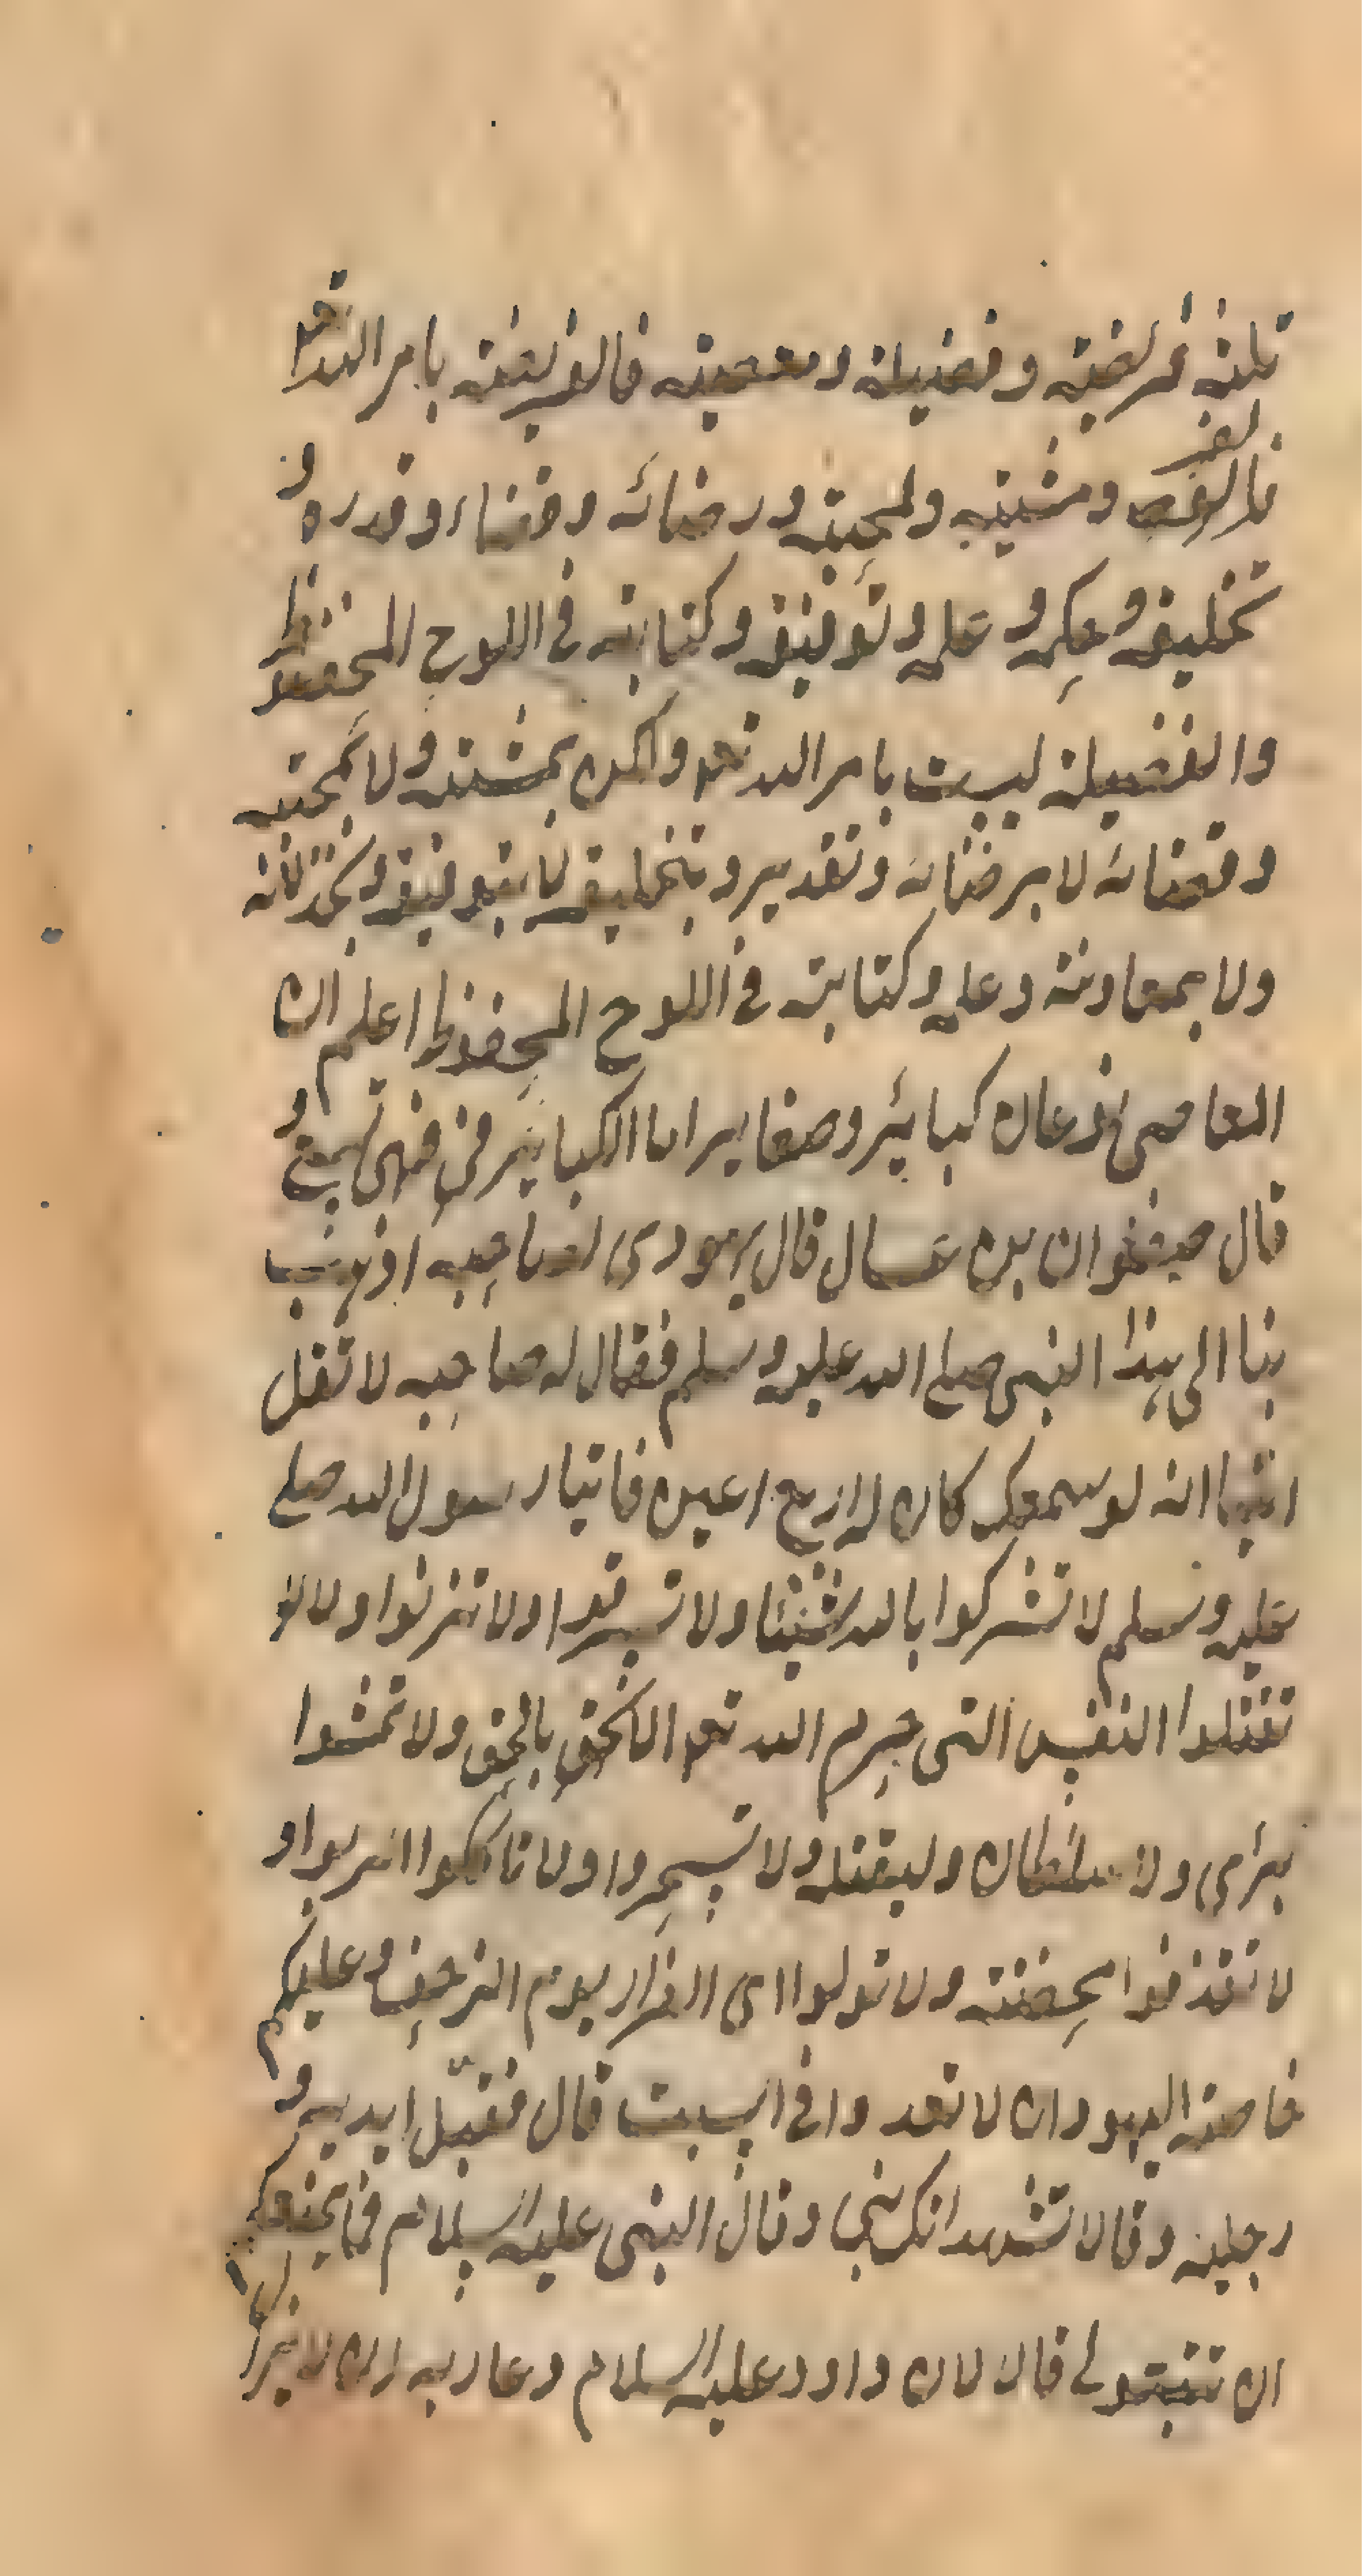 ثلثة فريضة وفضيلة ومعصية فالفريضة بامر الله تعا
ومشيته ومحبته ورضائه وقضاء وقدره و
تخليقه وحكمه وعلمه وتوفيقه وكتابته فى اللوح المحفوظ
والفضيلة ليست بامر الله تعه بمشته ولا بمحبته
وقضائه لا برضائه وتقديره وبتخليقه لا بتوفيقه وبخذلانه
ولا بمعاونته وعلمه وكتابته فى اللوح المحفوظ اعلم ان
المعاصى نوعان كبائر وصغاير اما الكبائر فهى تسع و
قال صفوان بن عسال قال يهودى لصاحبه اذهب
بنا الى هذا النبى صلى الله عليه وسلم فقال له صاحبه لا تقل
انه لو سمعك كان له اربع اعين فاتيا رسول الله صلى
عليه وسلم لا تشركوا بالله شيئا ولا تسرقوا ولا تزنوا ولا
تقتلوا النفس التى حرم الله تعه بالحق ولا تمشوا
ببرئ ولا سلطان وليقتله ولا تسحروا ولا تاكلوا الربوا و
لا تقذفوا محصنة ولا تولوا اى الفرار يوم الزحف وعليكم
خاصة اليهود ان لا تعدوا فى السبت قال فقبل ايديه و
رجليه وقالا نشهد انك نبى وقال النبى عليه السلام فما يمنعكم
ان تتبعو لى قالا لان داود عليه السلام دعا ربه ان لا يزال